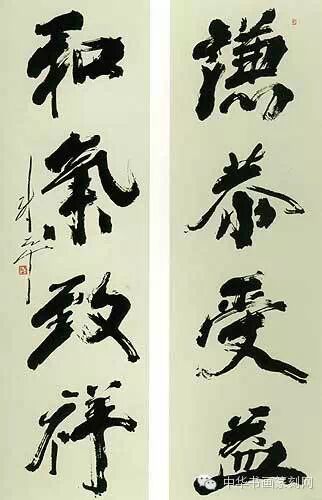 謙恭受益
和氣致祥
中华书画篆刻网